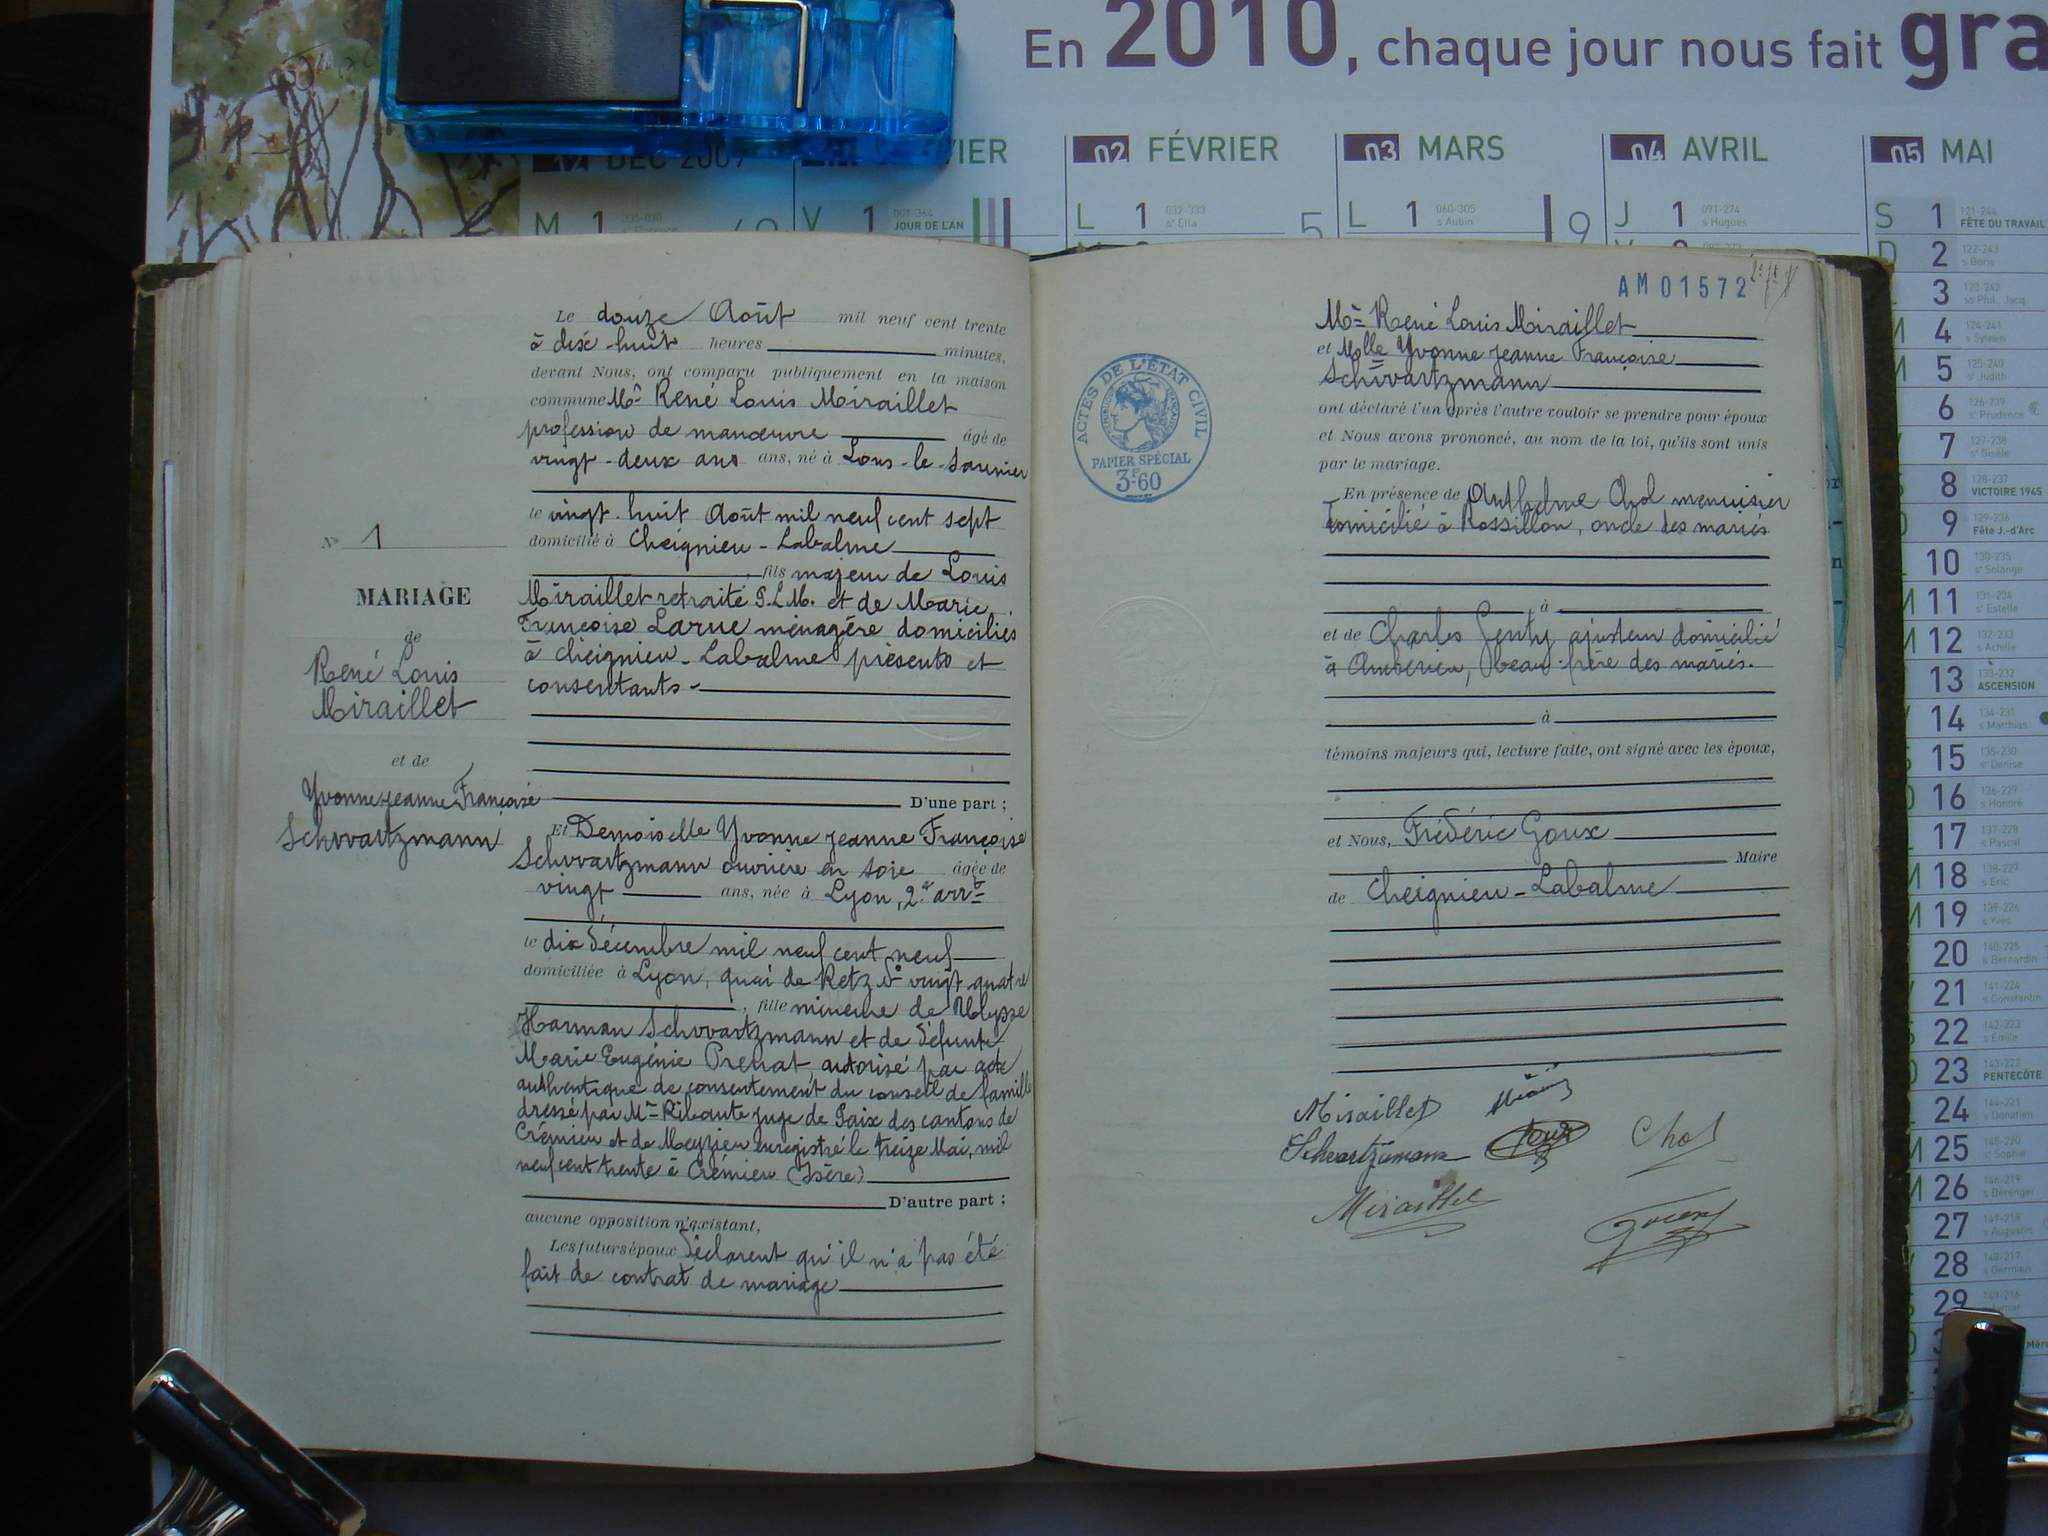 En 2010, chaque jour nous fait gra
DÉC 2009
VIER
02 FÉVRIER
03 MARS
04 AVRIL
05 MAI
M 1
V 1 001-364 JOUR DE L'AN
L 1 032-333 se Ella 5
L 1 060-305 s Aubin 9
J 1 091-274 s Hugues
S 1 121-244 FÊTE DU TRAVAIL
D 2 122-243 s Boris
3 123-242 ss Phil., Jacq.
4 124-241 s Sylvain
5 125-240 se Judith
6 126-239 se Prudence
7 127-238 se Gisèle
8 128-237 VICTOIRE 1945
9 129-236 Fête J.-d'Arc
10 130-235 se Solange
11 131-234 se Estelle
12 132-233 s Achille
13 133-232 ASCENSION
14 134-231 s Matthias
15 135-230 se Denise
16 136-229 s Honoré
17 137-228 s Pascal
18 138-227 s Eric
19 139-226 s Yves
20 140-225 s Bernardin
21 141-224 s Constantin
22 142-223 s Emile
23 143-222 PENTECÔTE
24 144-221 s Donatien
25 145-220 se Sophie
26 146-219 s Bérenger
27 147-218 s Augustin
28 148-217 s Germain
29 149-216
N° 1
MARIAGE
de
René Louis
Miraillet
et de
Yvonne Jeanne Françoise
Schwartzmann
Le douze Août mil neuf cent trente
à dix-huit heures minutes,
devant Nous, ont comparu publiquement en la maison
commune Mr René Louis Miraillet
profession de manœuvre âgé de
vingt-deux ans ans, né à Lons-le-Saunier
le vingt-huit Août mil neuf cent sept
domicilié à Cheignieu-Labalme
, fils majeur de Louis
Miraillet retraité P.L.M. et de Marie
Françoise Larue ménagère domiciliés
à Cheignieu-Labalme présents et
consentants.
D'une part ;
Et Demoiselle Yvonne Jeanne Françoise
Schwartzmann ouvrière en soie âgée de
vingt ans, née à Lyon, 2e arrt
le dix décembre mil neuf cent neuf
domiciliée à Lyon, quai de Retz No vingt-quatre
, fille mineure de Ulysse
Harman Schwartzmann et de défunte
Marie Eugénie Prenat, autorisé par acte
authentique de consentement du conseil de famille
dressé par Mr Ribaute Juge de Paix des cantons de
Crémieu et de Meyzieu enregistré le treize Mai mil
neuf cent trente à Crémieu (Isère)
D'autre part ;
aucune opposition n'existant,
Les futurs époux déclarent qu'il n'a pas été
fait de contrat de mariage
AM 01572
ACTES DE L'ÉTAT CIVIL
PAPIER SPÉCIAL
3F60
Mr René Louis Miraillet
et Melle Yvonne Jeanne Françoise
Schwartzmann
ont déclaré l'un après l'autre vouloir se prendre pour époux
et Nous avons prononcé, au nom de la loi, qu'ils sont unis
par le mariage.
En présence de Anthelme Chol menuisier
domicilié à Rossillon, oncle des mariés
à
et de Charles Genty ajusteur domicilié
à Ambérieu, beau-père des mariés.
à
témoins majeurs qui, lecture faite, ont signé avec les époux,
et Nous, Frédéric Goux
Maire
de Cheignieu-Labalme
Miraillet
Schwartzmann
Goux
Chol
Miraillet